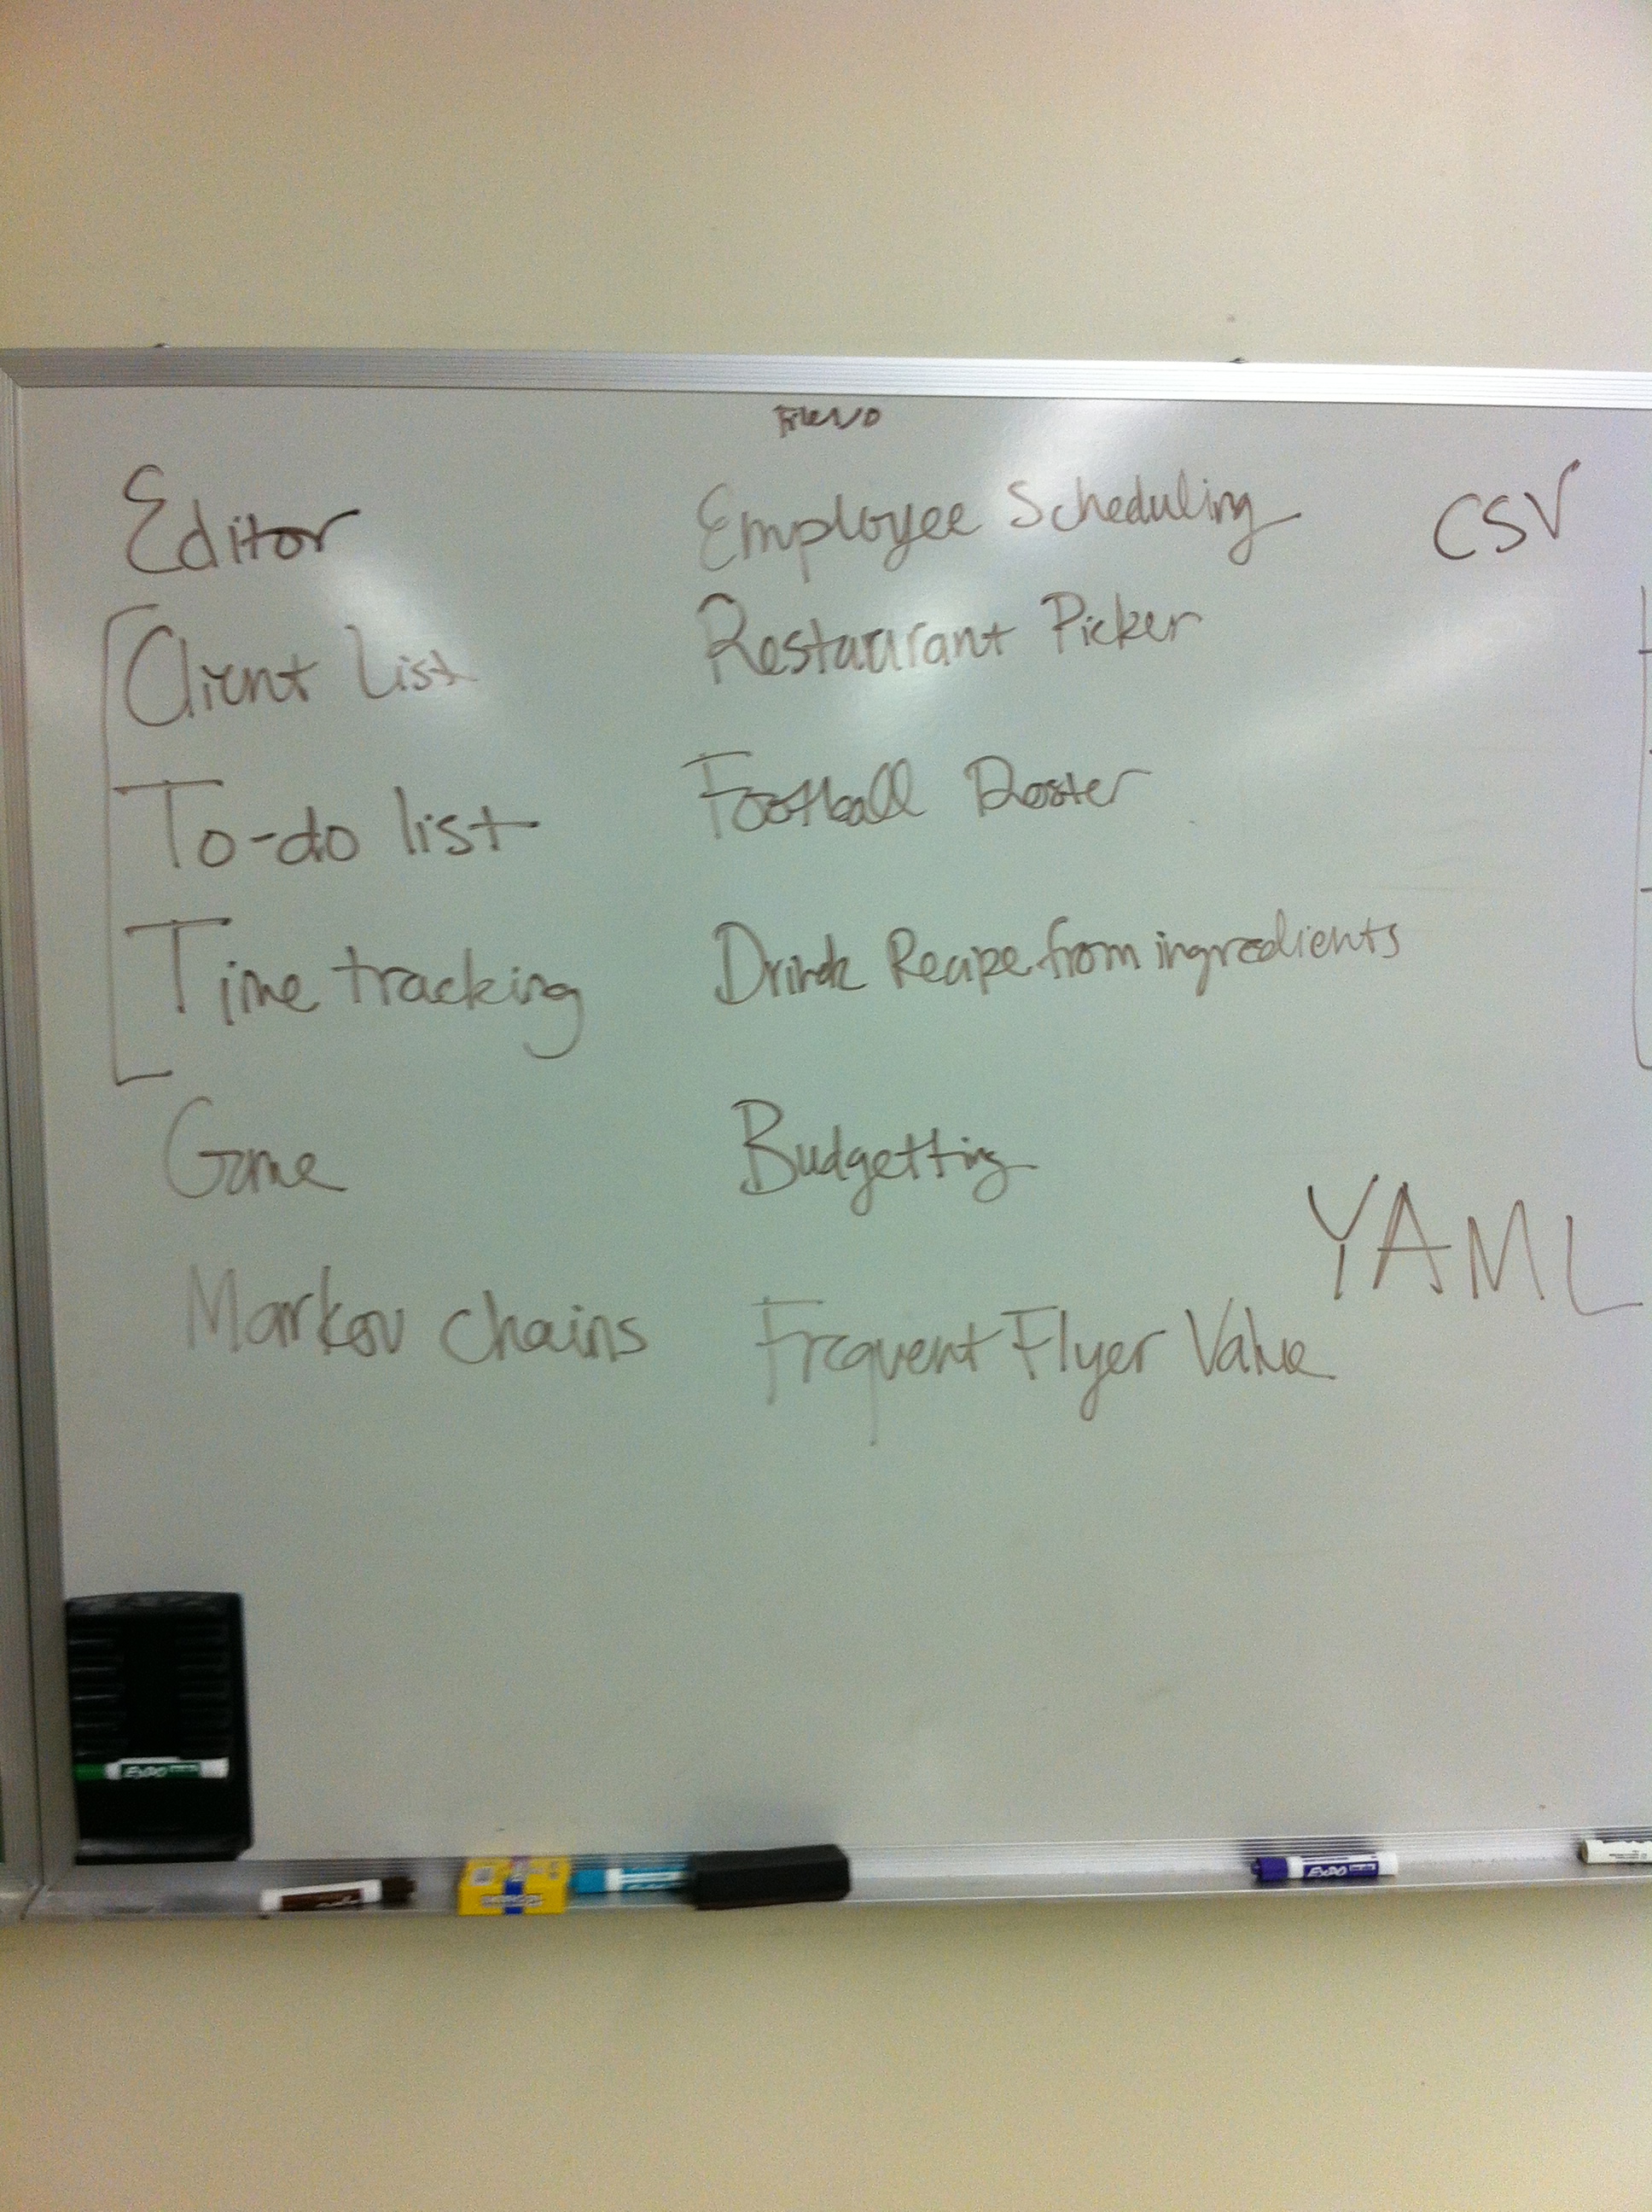 File I/O
Editor
Client List
To-do list
Time tracking
Game
Markov chains
Employee Scheduling
Restaurant Picker
Football Roster
Drink Recipe from ingredients
Budgetting
Frequent Flyer Value
CSV
YAML
EXPO
EXPO